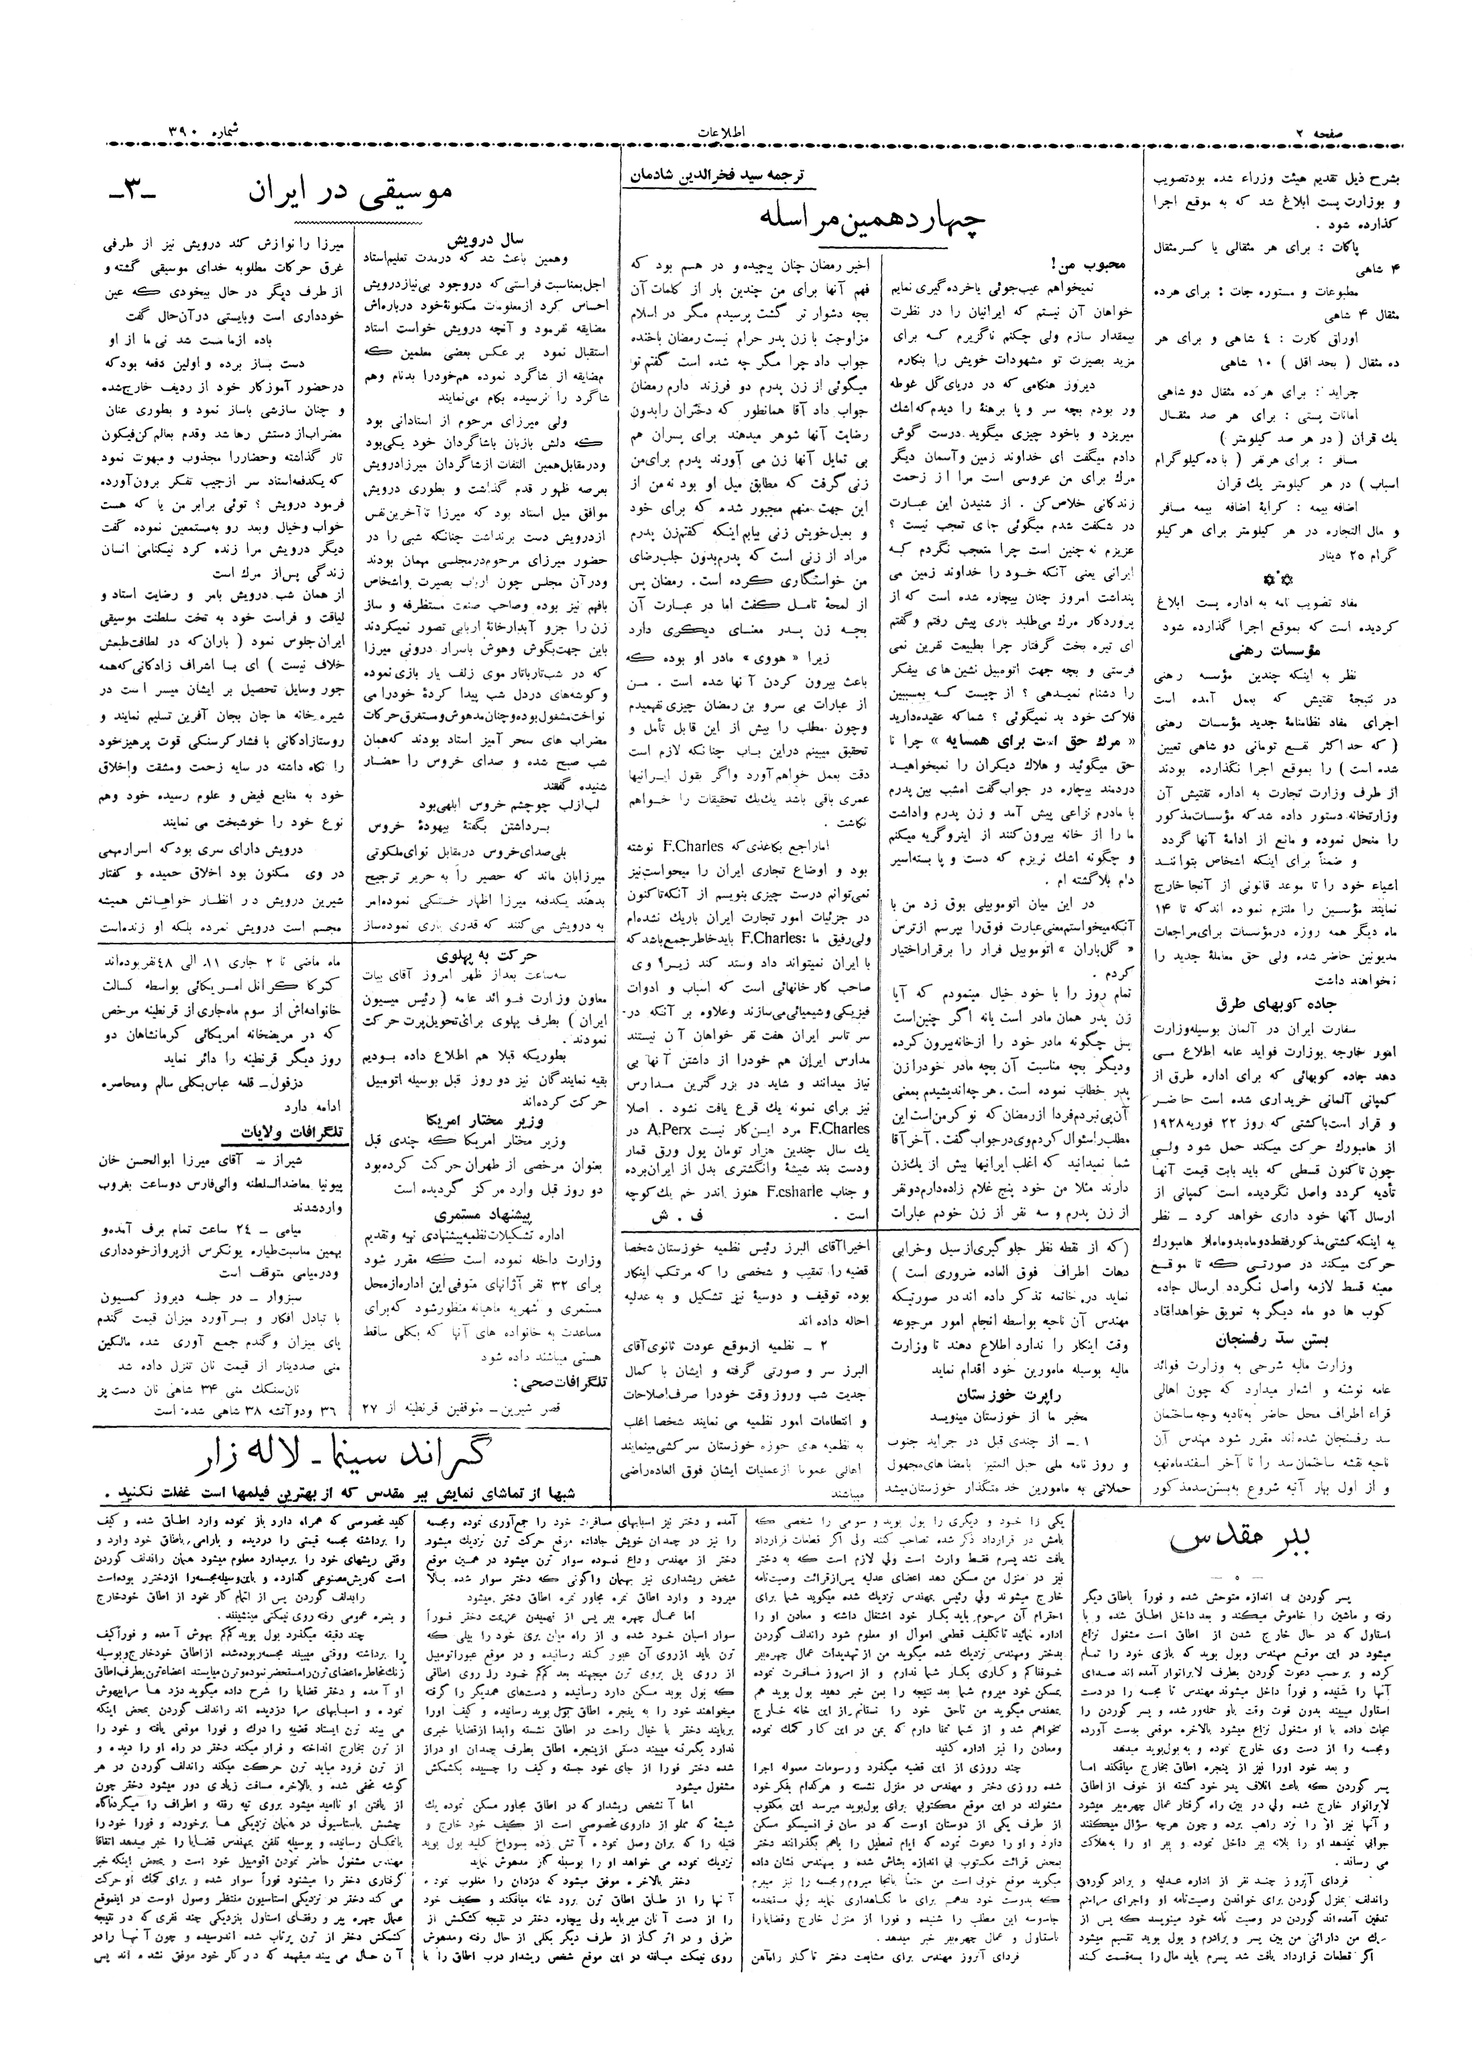 صفحه ۲
اطلاعات
شماره ۳۹۰
بشرح ذیل تقدیم هیئت وزراء شده بودتصویب
و بوزارت پست ابلاغ شد که به موقع اجرا
گذارده شود .
پاکات : برای هر مثقالی یا کسر مثقال
۴ شاهی
مطبوعات و مستوره جات : برای هرده
مثقال ۴ شاهی
اوراق کارت : ٤ شاهی و برای هر
ده مثقال ( بحد اقل ) ۱۰ شاهی
جراید : برای هر ده مثقال دو شاهی
امانات پستی : برای هر صد مثقال
یك قران ( در هر صد کیلومتر )
مسافر : برای هر نفر ( با ده کیلو گرام
اسباب ) در هر کیلومتر یك قران
اضافه بیمه : کرایهٔ اضافه بیمه مسافر
و مال التجاره در هر کیلومتر برای هر کیلو
گرام ۲۵ دینار
مفاد تصویب نامه به اداره پست ابلاغ
گردیده است که بموقع اجرا گذارده شود
مؤسسات رهنی
نظر به اینکه چندین مؤسسه رهنی
در نتیجهٔ تفتیش که بعمل آمده است
اجرای مفاد نظامنامهٔ جدید مؤسسات رهنی
( که حداکثر نفع تومانی دو شاهی تعیین
شده است ) را بموقع اجرا نگذارده بودند
از طرف وزارت تجارت به اداره تفتیش آن
وزارتخانه دستور داده شد که مؤسسات مذکور
را منحل نموده و مانع از ادامهٔ آنها گردد
و ضمناً برای اینکه اشخاص بتوانند
اشیاء خود را تا موعد قانونی از آنجا خارج
نمایند مؤسسین را ملتزم نموده اند که تا ۱۴
ماه دیگر همه روزه درمؤسسات برای مراجعات
مدیونین حاضر شده ولی حق معاملهٔ جدید را
نخواهند داشت
جاده کوبهای طرق
سفارت ایران در آلمان بوسیله وزارت
امور خارجه بوزارت فواید عامه اطلاع می
دهد جاده کوبهائی که برای اداره طرق از
کمپانی آلمانی خریداری شده است حاضر
و قرار است باکشتی که روز ۲۲ فوریه ۱۹۲۸
از هامبورك حرکت میکند حمل شود ولی
چون تاکنون قسطی که باید بابت قیمت آنها
تأدیه گردد واصل نگردیده است کمپانی از
ارسال آنها خود داری خواهد کرد ــ نظر
به اینکه کشتی مذکور فقط دوماه بدوماه از هامبورك
حرکت میکند در صورتی که تا موقع
معینه قسط لازمه واصل نگردد ارسال جاده
کوب ها دو ماه دیگر به تعویق خواهدافتاد
بستن سدّ رفسنجان
وزارت مالیه شرحی به وزارت فوائد
عامه نوشته و اشعار میدارد که چون اهالی
قراء اطراف محل حاضر به تادیه وجه ساختمان
سد رفسنجان شده اند مقرر شود مهندس آن
ناحیه نقشه ساختمان سد را تا آخر اسفندماه تهیه
و از اول بهار آتیه شروع به بستن سد مذکور
ترجمه سید فخرالدین شادمان
چهاردهمین مراسله
محبوب من!
نمیخواهم عیب جوئی یا خرده گیری نمایم
خواهان آن نیستم که ایرانیان را در نظرت
بیمقدار سازم ولی چکنم ناگزیرم که برای
مزید بصیرت تو مشهودات خویش را بنگارم
دیروز هنگامی که در دریای گل غوطه
ور بودم بچه سر و پا برهنهٔ را دیدم که اشك
میریزد و باخود چیزی میگوید. درست گوش
دادم میگفت ای خداوند زمین و آسمان دیگر
مرك برای من عروسی است مرا از زحمت
زندگانی خلاص کن . از شنیدن این عبارت
در شگفت شدم میگوئی جای تعجب نیست ؟
عزیزم نه چنین است چرا متعجب نگردم که
ایرانی یعنی آنکه خود را خداوند زمین می
پنداشت امروز چنان بیچاره شده است که از
پروردکار مرك می‌طلبد باری پیش رفتم و گفتم
ای تیره بخت گرفتار چرا بطبیعت نفرین نمی
فرستی و بچه جهت اتومبیل نشین های بیفکر
را دشنام نمیدهی ؟ از چیست که بمسببین
فلاکت خود بد نمیگوئی ؟ شما که عقیده دارید
« مرك حق است برای همسایه » چرا نا
حق میگوئید و هلاك دیگران را نمیخواهید
دردمند بیچاره در جواب گفت امشب بین پدرم
با مادرم نزاعی پیش آمد و زن پدرم واداشت
ما را از خانه بیرون کنند از اینرو گریه میکنم
و چگونه اشك نریزم که دست و پا بسته اسیر
دام بلا گشته ام .
در این میان اتوموبیلی بوق زد من با
آنکه میخواستم معنی عبارت فوق را بپرسم از ترس
« گل باران » اتوموبیل فرار را برقرار اختیار
کردم .
تمام روز را با خود خیال مینمودم که آیا
زن پدر همان مادر است یا نه اگر چنین است
پس چگونه مادر خود را از خانه بیرون کرده
ودیگر بچه مناسبت آن بچه مادر خود را زن
پدر خطاب نموده است . هر چه اندیشیدم بمعنی
آن پی نبردم فردا از رمضان که نوکر من است این
مطلب را سئوال کردم وی در جواب گفت . آخر آقا
شما نمیدانید که اغلب ایرانیها بیش از یك زن
دارند مثلا من خود پنج غلام زاده دارم دو نفر
از زن پدرم و سه نفر از زن خودم عبارات
اخیر رمضان چنان پیچیده و در هم بود که
فهم آنها برای من چندین بار از کلمات آن
بچه دشوار تر گشت پرسیدم مگر در اسلام
مزاوجت با زن پدر حرام نیست رمضان باخنده
جواب داد چرا مگر چه شده است گفتم تو
میگوئی از زن پدرم دو فرزند دارم رمضان
جواب داد آقا همانطور که دختران را بدون
رضایت آنها شوهر میدهند برای پسران هم
بی تمایل آنها زن می آورند پدرم برای من
زنی گرفت که مطابق میل او بود نه من از
این جهت منهم مجبور شده که برای خود
و بمیل خویش زنی بیابم اینکه گفتم زن پدرم
مراد از زنی است که پدرم بدون جلب رضای
من خواستگاری کرده است . رمضان پس
از لمحهٔ تامل گفت اما در عبارت آن
بچه زن پدر معنای دیگری دارد
زیرا « هووی » مادر او بوده که
باعث بیرون کردن آنها شده است . من
از عبارات بی سرو بن رمضان چیزی نفهمیدم
وچون مطلب را بیش از این قابل تأمل و
تحقیق میبینم دراین باب چنانکه لازم است
دقت بعمل خواهم آورد واگر بقول ایرانیها
عمری باقی باشد یك یك تحقیقات را خواهم
نگاشت .
اما راجع بکاغذی که F.Charles نوشته
بود و اوضاع تجاری ایران را میخواست نیز
نمی‌توانم درست چیزی بنویسم از آنکه تاکنون
در جزئیات امور تجارت ایران باریك نشده ام
ولی رفیق ما F.Charles: باید خاطر جمع باشد که
با ایران نمیتواند داد وستد کند زیرا وی
صاحب کارخانهائی است که اسباب و ادوات
فیزیکی و شیمیائی می‌سازند و علاوه بر آنکه در
سر تاسر ایران هفت نفر خواهان آن نیستند
مدارس ایران هم خودرا از داشتن آنها بی
نیاز میدانند و شاید در بزرگترین مدارس
نیز برای نمونه یك قرع یافت نشود . اصلا
F.Charles مرد این کار نیست A.Perx در
یك سال چندین هزار تومان پول ورق قمار
ودست بند شیشهٔ وانگشتری بدل از ایران برده
و جناب F.csharle هنوز اندر خم یك کوچه
است .
ف . ش
(که از نقطه نظر جلو گیری از سیل و خرابی
دهات اطراف فوق العاده ضروری است )
نماید در خاتمه تذکر داده اند در صورتیکه
مهندس آن ناحیه بواسطه انجام امور مرجوعه
وقت اینکار را ندارد اطلاع دهند تا وزارت
مالیه بوسیله مامورین خود اقدام نماید
راپرت خوزستان
مخبر ما از خوزستان مینویسد
۱ ــ از چندی قبل در جراید جنوب
و روز نامه ملی حبل المتین بامضا های مجهول
حملاتی به مامورین خدمتگذار خوزستان میشد
اخیرا آقای البرز رئیس نظمیه خوزستان شخصا
قضیه را تعقیب و شخصی را که مرتکب اینکار
بوده توقیف و دوسیهٔ نیز تشکیل و به عدلیه
احاله داده اند
۲ ــ نظمیه از موقع عودت ثانوی آقای
البرز سر و صورتی گرفته و ایشان با کمال
جدیت شب وروز وقت خودرا صرف اصلاحات
و انتظامات امور نظمیه می نمایند شخصا اغلب
به نظمیه های حوزه خوزستان سرکشی مینمایند
اهالی عموما از عملیات ایشان فوق العاده راضی
میباشند
موسیقی در ایران
ــ۳ــ
سال درویش
وهمین باعث شد که در مدت تعلیم استاد
اجل بمناسبت فراستی که در وجود بی نیاز درویش
احساس کرد از معلومات مکنونهٔ خود درباره اش
مضایقه نفرمود و آنچه درویش خواست استاد
استقبال نمود بر عکس بعضی معلمین که
مضایقه از شاگرد نموده هم خودرا بدنام وهم
شاگرد را نرسیده بکام می‌نمایند
ولی میرزای مرحوم از استادانی بود
که دلش بازبان باشاگردان خود یکی بود
ودر مقابل همین التفات از شاگردان میرزا درویش
بعرصه ظهور قدم گذاشت و بطوری درویش
موافق میل استاد بود که میرزا تا آخرین نفس
از درویش دست برنداشت چنانکه شبی را در
حضور میرزای مرحوم در مجلسی مهمان بودند
ودر آن مجلس چون ارباب بصیرت و اشخاص
بافهم نیز بوده وصاحب صنعت مستظرفه و ساز
زن را جزو آبدارخانهٔ اربابی تصور نمیکردند
باین جهت بگوش وهوش باسرار درونی میرزا
که در شب تار باتار موی زلف یار بازی نموده
و گوشه های در دل شب پیدا کردهٔ خود را می
نواخت مشغول بوده و چنان مدهوش و مستغرق حرکات
مضراب های سحر آمیز استاد بودند که همان
شب صبح شده و صدای خروس را حضار
شنیده گفتند
لب از لب چو چشم خروس ابلهی بود
برداشتن بگفتهٔ بیهودهٔ خروس
بلی صدای خروس در مقابل نوای ملکوتی
میرزا بان ماند که حصیر را به حریر ترجیح
بدهند یکدفعه میرزا اظهار خستگی نموده امر
به درویش می کنند که قدری یاری نموده ساز
میرزا را نوازش کند درویش نیز از طرفی
غرق حرکات مطلوبه خدای موسیقی گشته و
از طرف دیگر در حال بیخودی که عین
خودداری است وبایستی در آن حال گفت
باده از ما مست شد نی ما از او
دست بساز برده و اولین دفعه بود که
در حضور آموزکار خود از ردیف خارج شده
و چنان سازشی باساز نمود و بطوری عنان
مضراب از دستش رها شد وقدم بعالم کن فیکون
تار گذاشته وحضار را مجذوب و مبهوت نمود
که یکدفعه استاد سر از جیب تفکر برون آورده
فرمود درویش ؟ توئی برابر من یا که هست
خواب وخیال وبعد رو به مستمعین نموده گفت
دیگر درویش مرا زنده کرد نیکنامی انسان
زندگی پس از مرك است
از همان شب درویش بامر و رضایت استاد و
لیاقت و فراست خود به تخت سلطنت موسیقی
ایران جلوس نمود ( باران که در لطافت طبعش
خلاف نیست ) ای بسا اشراف زادگانی که همه
جور وسایل تحصیل بر ایشان میسر است در
شیره خانه ها جان بجان آفرین تسلیم نمایند و
روستازادکانی با فشار گرسنگی قوت پرهیز خود
را نگاه داشته در سایه زحمت ومشقت واخلاق
خود به منابع فیض و علوم رسیده خود وهم
نوع خود را خوشبخت می نمایند
درویش دارای سری بود که اسرار مهمی
در وی مکنون بود اخلاق حمیده و گفتار
شیرین درویش در انظار خواهیانش همیشه
مجسم است درویش نمرده بلکه او زنده است
حرکت به پهلوی
سه ساعت بعداز ظهر امروز آقای بیات
معاون وزارت فوائد عامه ( رئیس میسیون
ایران ) بطرف پهلوی برای تحویل پرت حرکت
نمودند .
بطوریکه قبلا هم اطلاع داده بودیم
بقیه نمایندگان نیز دو روز قبل بوسیله اتومبیل
حرکت کرده اند
وزیر مختار امریکا
وزیر مختار امریکا که چندی قبل
بعنوان مرخصی از طهران حرکت کرده بود
دو روز قبل وارد مرکز گردیده است
پیشنهاد مستمری
اداره تشکیلات نظمیه پیشنهادی تهیه و تقدیم
وزارت داخله نموده است که مقرر شود
برای ۳۲ نفر آژانهای متوفی این اداره از محل
مستمری و شهریه ماهیانه منظور شود که برای
مساعدت به خانواده های آنها که بکلی ساقط
هستی میباشند داده شود
تلگرافات صحی :
قصر شیرین ــ متوقفین قرنطینه از ۲۷
ماه ماضی تا ۲ جاری ۱۱ الی ۴۸ نفر بوده اند
کنرکا کرانل امریکائی بواسطه کسالت
خانواده اش از سوم ماه جاری از قرنطینه مرخص
که در مریضخانه امریکائی کرمانشاهان دو
روز دیگر قرنطینه را دائر نماید
دزفول ــ قلعه عباس بکلی سالم ومحاصره
ادامه دارد
تلگرافات ولایات
شیراز ــ آقای میرزا ابوالحسن خان
پیونیا معاضدالسلطنه والی فارس دو ساعت بغروب
وارد شدند
میامی ــ ۲۴ ساعت تمام برف آمده و
بهمین مناسبت طیاره یونکرس از پرواز خودداری
ودر میامی متوقف است
سبزوار ــ در جلسه دیروز کمسیون
با تبادل افکار و بر آورد میزان قیمت گندم
پای میزان و گندم جمع آوری شده مالکین
منی صد دینار از قیمت نان تنزل داده شد
نان سنگك منی ۳۴ شاهی نان دست پز
۳۶ ودو آتشه ۳۸ شاهی شده است
گراند سینما ــ لاله زار
شبها از تماشای نمایش ببر مقدس که از بهترین فیلمها است غفلت نکنید .
ببر مقدس
پسر گوردن بی اندازه متوحش شده و فوراً باطاق دیگر
رفته و ماشین را خاموش میکند و بعد داخل اطاق شده و با
استاول که در حال خارج شدن از اطاق است مشغول نزاع
میشود در این موقع مهندس وپول بوید که بازی خود را تمام
کرده و بر حسب دعوت گوردن بطرف لابراتوار آمده اند صدای
آنها را شنیده و فوراً داخل میشوند مهندس تا مجسمه را در دست
استاول میبیند بدون فوت وقت باو حمله ور شده و پسر گوردن را
نجات داده با او مشغول نزاع میشود بالاخره موقعی بدست آورده
ومجسمه را از دست وی خارج نموده و به پول بوید میدهد
و بعد خود اورا نیز از پنجره اطاق بخارج میافکند اما
پسر گوردن که باعث اتلاف پدر خود گشته از خوف از اطاق
لابراتوار خارج شده ولی در بین راه گرفتار عمال چهره ببر میشود
و آنها نیز او را نزد راهب برده و چون هرچه سؤال میکنند
جوابی نمیدهد او را بلانه ببر داخل نموده و ببر او را به هلاکت
می رساند .
فردای آنروز چند نفر از اداره عدلیه و برادر گوردن
راندلف بمنزل گوردن برای خواندن وصیت نامه او واجرای مراسم
تدفین آمده اند گوردن در وصیت نامه خود مینویسد که پس از
مرك من دارائی من بین پسر و برادرم و پول بوید تقسیم میشود
اگر قطعات قرارداد یافت شد پسرم باید مال را بسه قسمت کند
یکی را خود و دیگری را پول بوید و سومی را شخصی که
نامش در قرارداد ذکر شده تصاحب کنند ولی اگر قطعات قرارداد
یافت نشد پسرم فقط وارث است ولی لازم است که به دختر
نیز در منزل من مسکن دهد اعضای عدلیه پس از قرائت وصیت نامه
خارج میشوند ولی رئیس بمهندس نزدیك شده میگوید شما برای
احترام آن مرحوم باید بکار خود اشتغال داشته و معادن او را
اداره نمائید تا تکلیف قطعی اموال او معلوم شود راندلف گوردن
بدختر ومهندس نزدیك شده میگوید من از تهدیدات عمال چهره ببر
خوفناکم و کاری بکار شما ندارم و از امروز مسافرت نموده
بمسکن خود میروم شما بعد نتیجه را بمن خبر دهید پول بوید هم
بمهندس میگوید من تاحق خود را نستانم از این خانه خارج
نخواهم شد و از شما تمنا دارم که بمن در این کار کمك نموده
ومعادن را نیز اداره کنید
چند روزی از این قضیه میگذرد و رسومات معموله اجرا
شده روزی دختر و مهندس در منزل نشسته و هر کدام بفکر خود
مشغولند در این موقع مکتوبی برای پول بوید میرسد این مکتوب
از طرف یکی از دوستان اوست که در سان فرانسیسکو مسکن
دارد و او را دعوت نموده که ایام تعطیل را باهم بگذرانند دختر
بمحض قرائت مکتوب بی اندازه بشاش شده و بمهندس نشان داده
میگوید موقع خوبی است من حتماً بانجا میروم ومجسمه را نیز میبرم
که بدوست خود بدهم برای ما نگاهداری نماید ولی مستخدمه
جاسوسه این مطلب را شنیده و فورا از منزل خارج وقضایا را
باستاول و عمال چهره ببر خبر میدهد.
فردای آنروز مهندس برای مشایعت دختر تا گار راه آهن
آمده و دختر نیز اسبابهای مسافرت خود را جمع آوری نموده ومجسمه
را نیز در چمدان خویش جا داده موقع حرکت ترن نزدیك میشود.
دختر از مهندس وداع نموده سوار ترن میشود در همین موقع
شخص ریشداری نیز بهمان واگونی که دختر سوار شده بالا
میرود و وارد اطاق نمره مجاور نمره دختر میشود
اما عمال چهره ببر پس از فهمیدن عزیمت دختر فوراً
سوار اسبان خود شده و از راه میان بری خود را بپلی که
ترن باید از روی آن عبور کند رسانیده و در موقع عبور اتومبیل
از روی پل بروی ترن میجهند بعد کم کم خود را روی اطاقی
که پول بوید مسکن دارد رسانیده و دست‌های همدیگر را گرفته
میخواهند خود را به پنجره اطاق پول بوید رسانیده و کیف اورا
بربایند دختر با خیال راحت در اطاق نشسته وابدا از قضایا خبری
ندارد یکمرتبه میبیند دستی از پنجره اطاق بطرف چمدان او دراز
شده دختر فورا از جای خود جسته و کیف را چسبیده بکشمکش
مشغول میشود
اما آن شخص ریشدار که در اطاق مجاور مسکن نموده یك
شیشهٔ که مملو از داروی مخصوصی است از کیف خود خارج و
فتیله را که بران وصل نموده . آتش زده بسوراخ کلید پول بوید
نزدیك نموده می خواهد او را بوسیله گاز مدهوش نماید
دختر بالاخره موفق میشود که دزدان را مغلوب نموده
آنها را از طاق اطاق ترن برود خانه میافکند و کیف خود
را از دست آنان میرباید ولی بیچاره دختر در نتیجه کشمکش از
طرفی و در اثر گاز از طرف دیگر بکلی از حال رفته ومدهوش
روی نیمکت میافتد در این موقع شخص ریشدار درب اطاق را با
کلید مخصوصی که همراه دارد باز نموده وارد اطاق شده و کیف
را برداشته مجسمه قیمتی را دزدیده و بارامی باطاق خود وارد و
وقتی ریشهای خود را برمیدارد معلوم میشود همان راندلف گوردن
است که ریش مصنوعی گذارده و باین وسیله مجسمه را از دختر ربوده
راندلف گوردن پس از اتمام کار خود از اطاق خود خارج
و بنمره عمومی رفته روی نیمکتی مینشیند.
چند دقیقه میگذرد پول بوید کم کم بهوش آمده و فورا کیف
را برداشته ووقتی میبیند مجسمه ربوده شده از اطاق خود خارج وبوسیله
زنك مخاطره اعضای ترن را مستحضر نموده وترن میایستد اعضاء ترن بطرف اطاق
او آمده و دختر قضایا را شرح داده میگوید دزد ها مرا بیهوش
نموده و اسبابهای مرا دزدیده اند راندلف گوردن بمحض اینکه
می بیند ترن ایستاد قضیه را درك و فورا موقعی یافته و خود را
از ترن بخارج انداخته و فرار میکند دختر در راه او را دیده و
از ترن فرود میاید ترن حرکت میکند راندلف گوردن در هر
گوشه مخفی شده و بالاخره مسافت زیادی دور میشود دختر چون
از یافتن او ناامید میشود بروی تپه رفته و اطراف را مینگرد ناگاه
چشمش باستاسیونی در همان نزدیکی ها برخورده و فورا خود را
بانمکان رسانیده و بوسیله تلفن بمهندس قضایا را خبر میدهد اتفاقا
مهندس مشغول حاضر نمودن اتومبیل خود است و بمحض اینکه خبر
گرفتاری دختر را میشنود فوراً سوار شده و برای کمك او حرکت
می کند دختر در نزدیکی استاسیون منتظر وصول اوست در اینموقع
عمال چهره ببر و رفقای استاول بنزدیکی چند نفری که در نتیجه
کشمکش دختر از ترن پرتاب شده اندرسیده و چون آنها را در
آن حال می بینند میفهمند که در کار خود موفق نشده اند پس